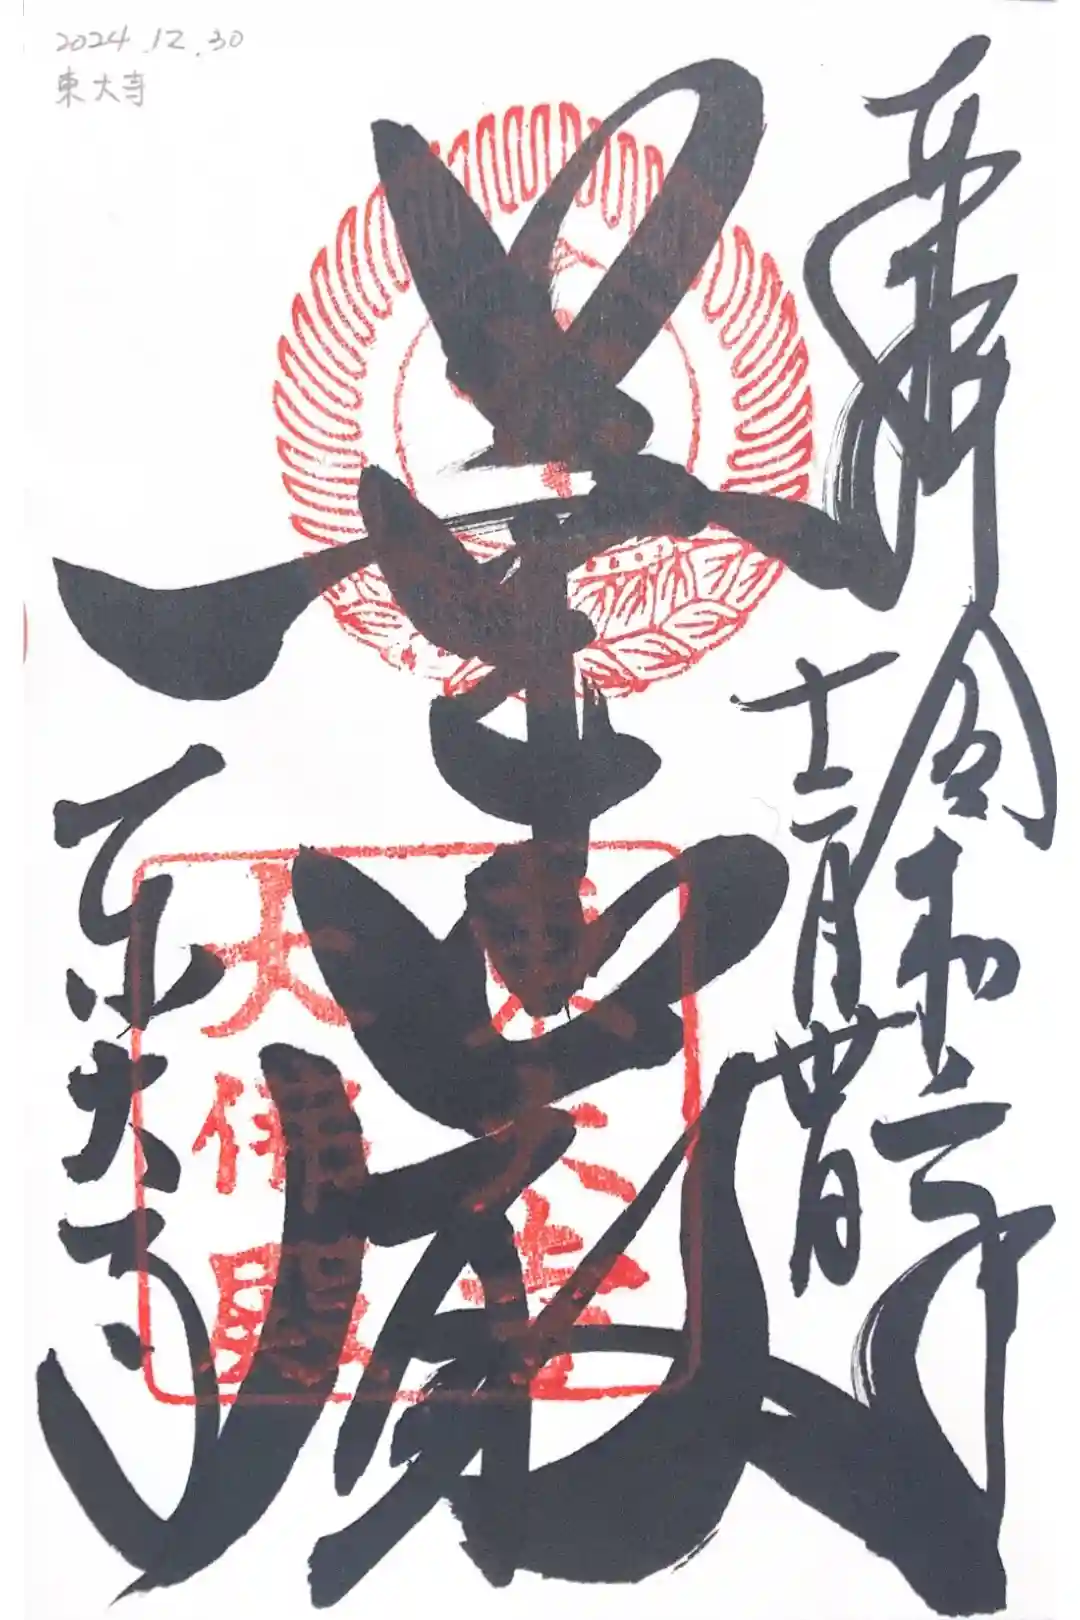 2024.12.30
東大寺
奉拝 令和六年
十二月卅日
華嚴
東大寺
東大寺
大佛殿